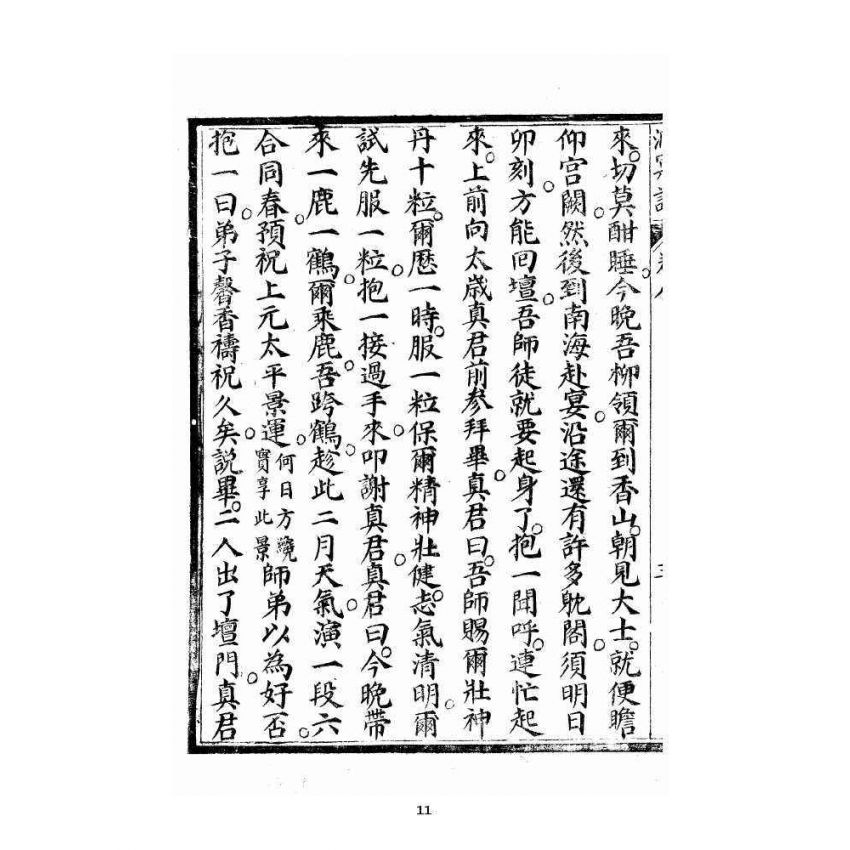 來切莫酣睡今晚吾柳領爾到香山朝見大士就便瞻
仰宮闕然後到南海赴宴沿途還有許多躭閣須明日
卯刻方能回壇吾師徒就要起身了抱一聞呼連忙起
來上前向太歲真君前參拜畢真君曰吾師賜爾壯神
丹十粒爾歷一時服一粒保爾精神壯健志氣清明爾
試先服一粒抱一接過手來叩謝真君真君曰今晚帶
來一鹿一鶴爾乘鹿吾跨鶴趁此二月天氣演一段六
合同春預祝上元太平景運何日方纔實享此景師弟以為好否
抱一曰弟子馨香禱祝久矣說畢二人出了壇門真君
11